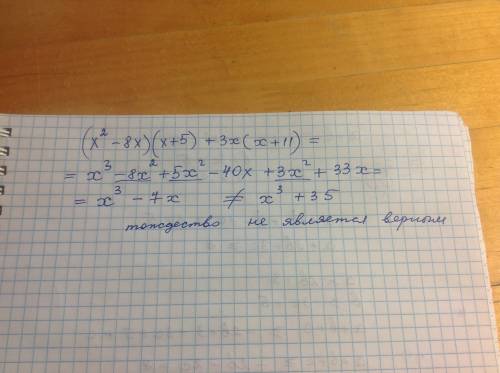 (x² - 8x)(x+5) + 3x(x+11) =
= x³ - 8x² + 5x² - 40x + 3x² + 33x =
= x³ - 7x ≠ x³ + 35
тождество не является верным